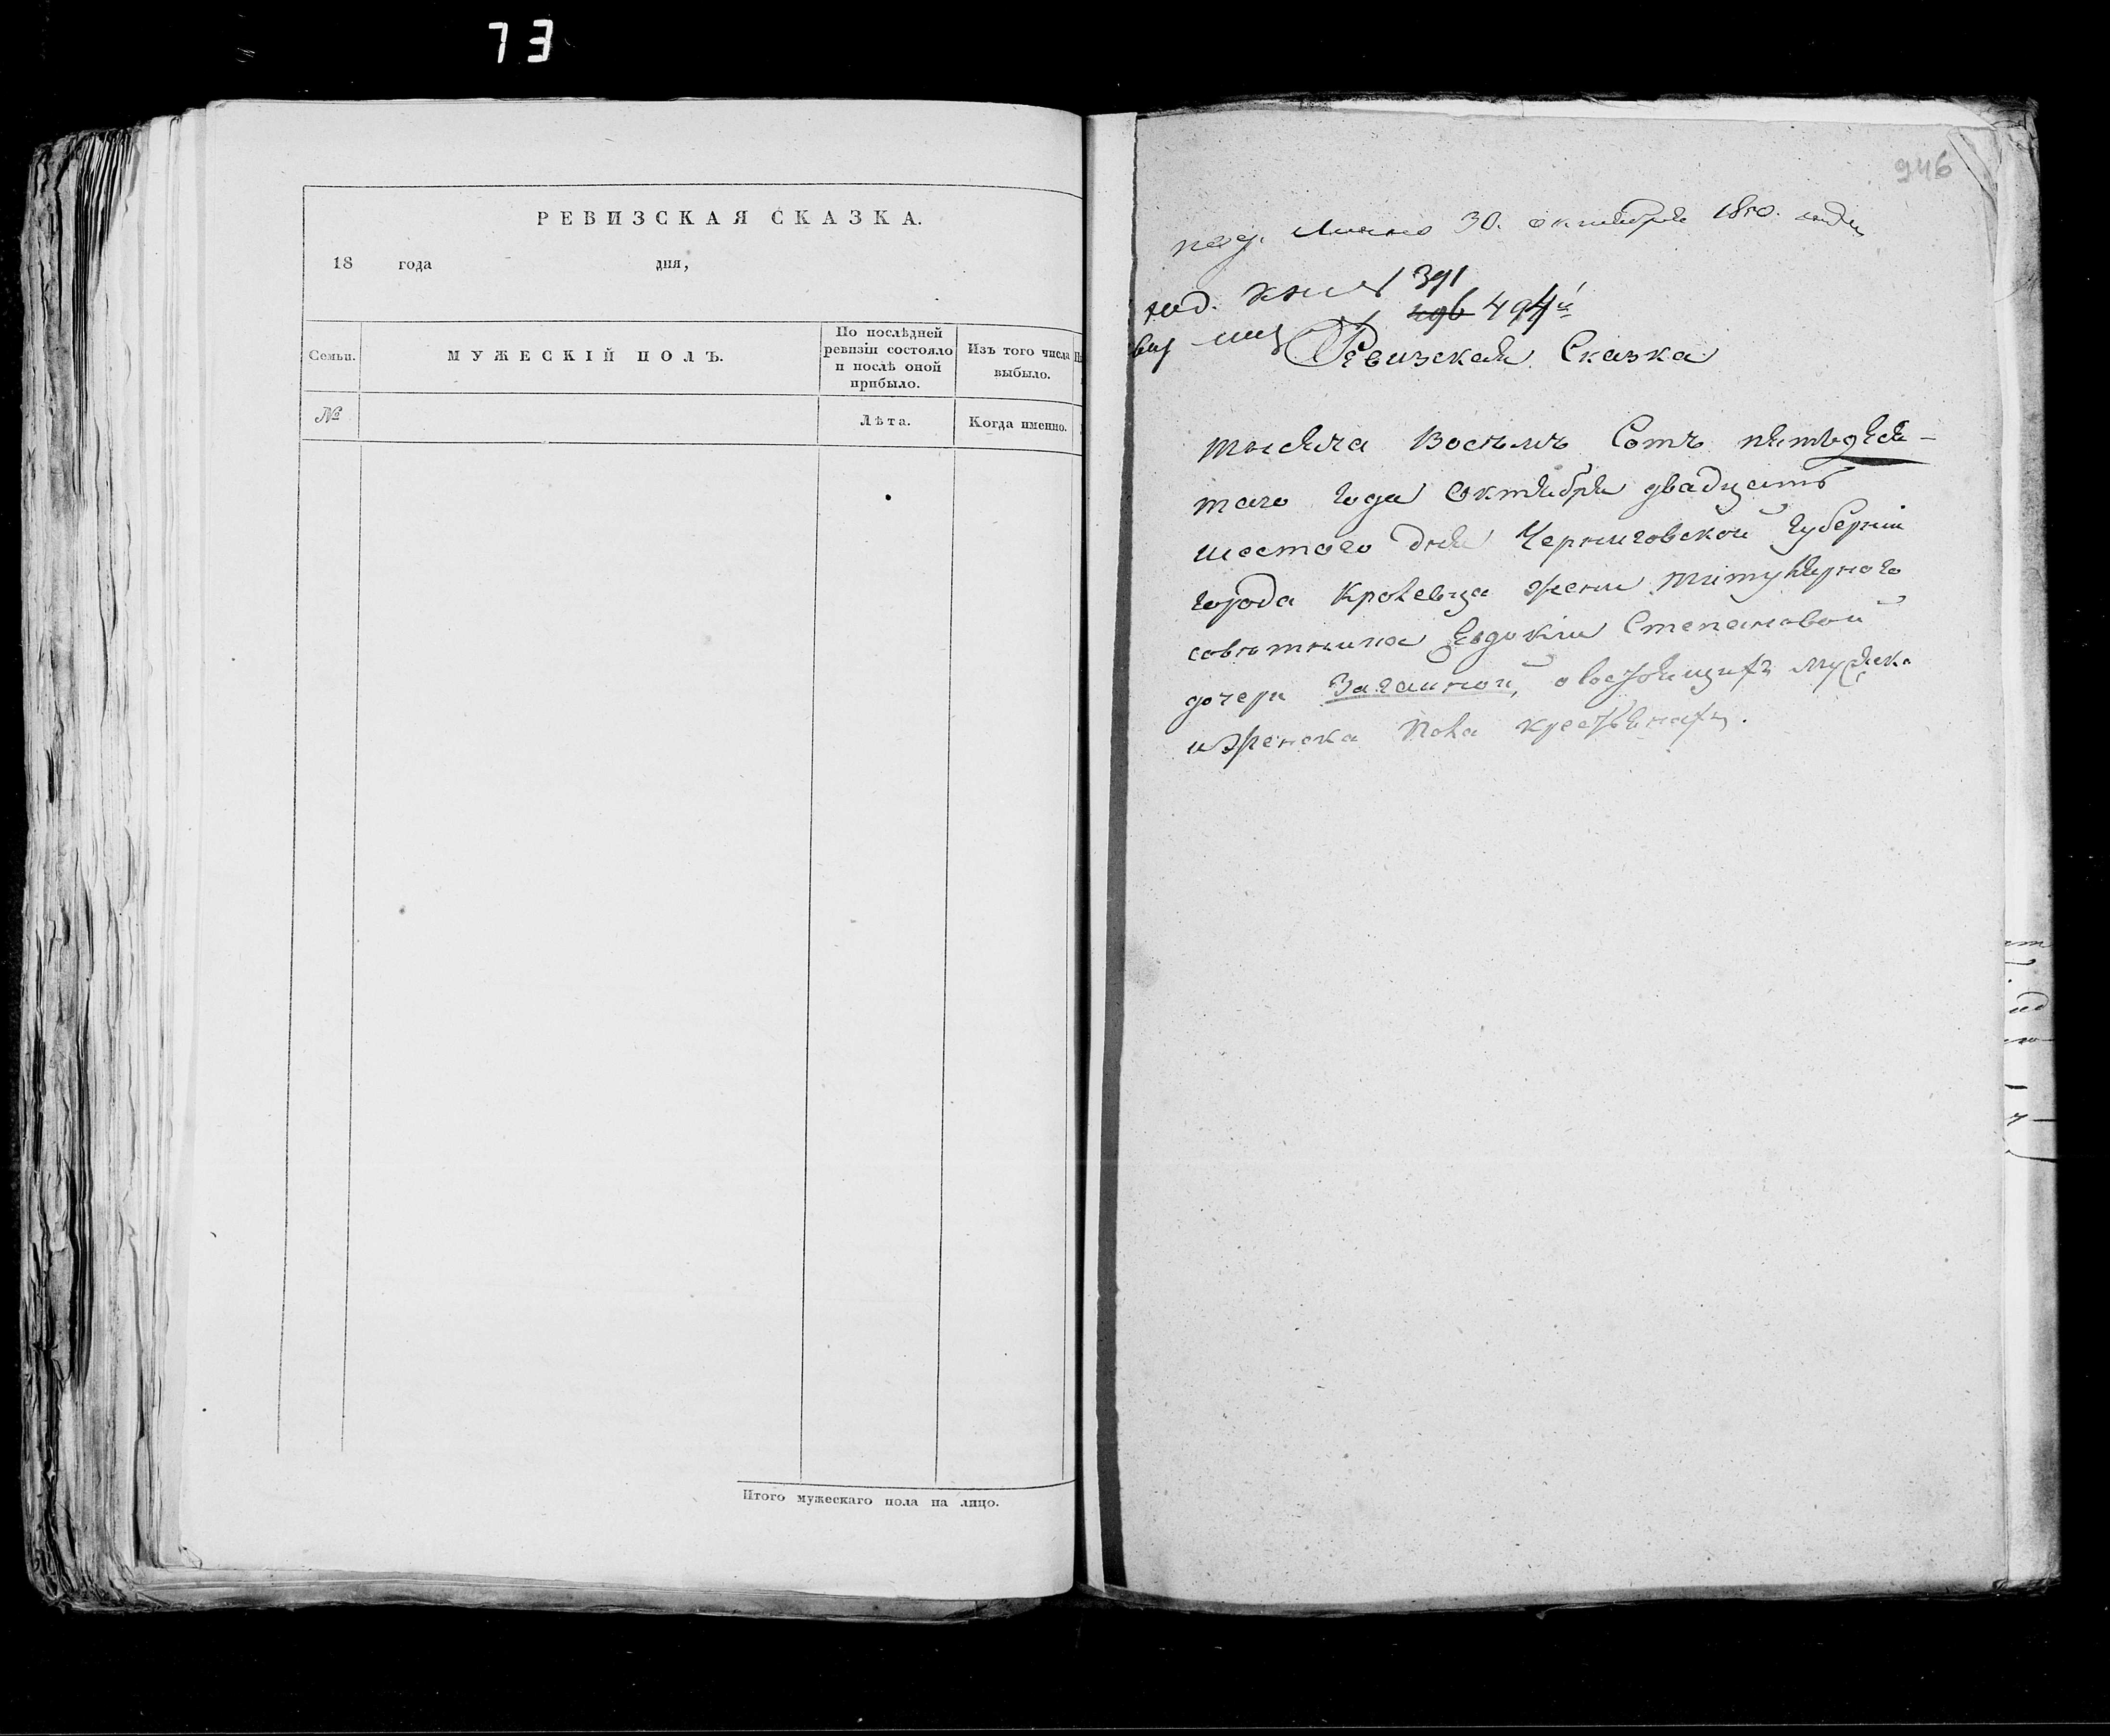 73
РЕВИЗСКАЯ СКАЗКА.
18 года дня,
Семьи.
МУЖЕСКІЙ ПОЛЪ.
По послѣдней
ревизіи состояло
и послѣ оной
прибыло.
Изъ того числа
выбыло.
№
Лѣта.
Когда именно.
Итого мужескаго пола на лицо.
946
под. лично 30. октября 1850. года
391
496 494й
Ревизская Сказка
тысяча Восемъ Сотъ пятьдеся-
таго года Октября двадцать
шестого дня Черниговской Губерніи
города Кролевца жены титулярного
совѣтника Евдокіи Степановой
дочери о состоящихъ мужска
и женска пола крестьянахъ.